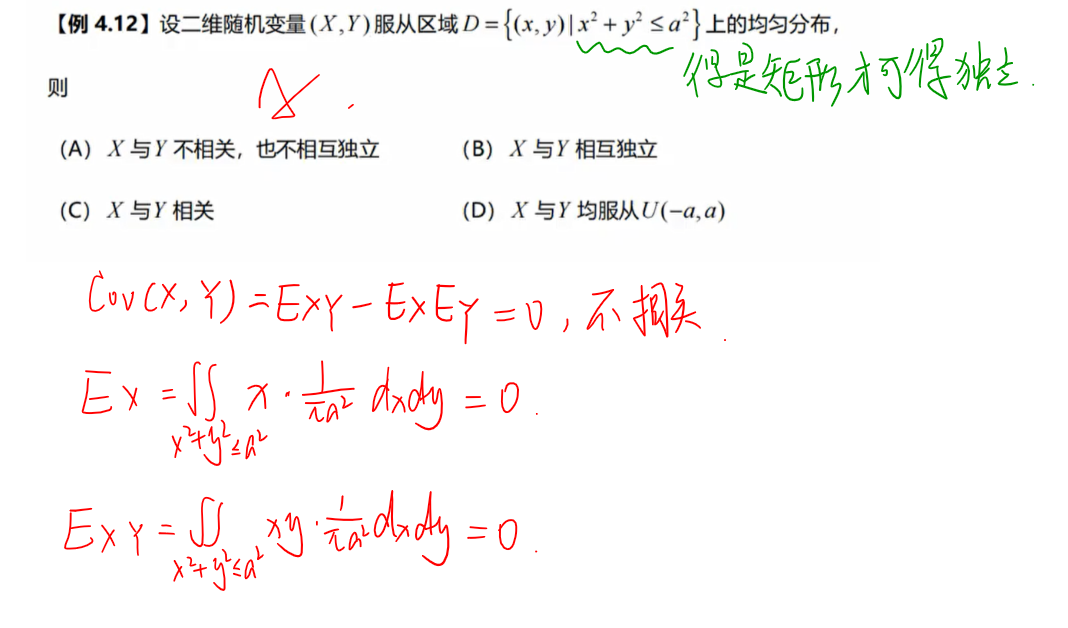 【例 4.12】设二维随机变量(X,Y)服从区域D={(x,y)|x²+y²≤a²}上的均匀分布,
得是矩形才可得独立.
则
A.
(A) X与Y不相关, 也不相互独立 (B) X与Y相互独立
(C) X与Y相关 (D) X与Y均服从U(-a,a)
Cov(X,Y)=EXY-EXEY=0, 不相关.
EX=∬x·1/πa² dxdy=0.
x²+y²≤a²
EXY=∬xy·1/πa² dxdy=0.
x²+y²≤a²